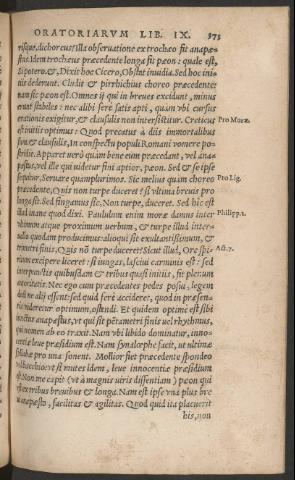 ORATORIARVM LIB. IX. 373
risque, dichoreus: Illa obseruatione ex trochæo fit anapæ-
stus. Idem trochæus præcedente longa fit pæon: quale est,
Si potero. &, Dixit hoc Cicero, Obstat inuidia. Sed hoc ini-
tiis dederunt. Cludit & pirrhichius choreo præcedente:
nam sic pæon est. Omnes ij qui in breues excidunt, minus
erunt stabiles: nec alibi ferè satis apti, quàm vbi cursus
orationis exigitur, & clausulis non intersistitur. Creticus
est initiis optimus: Quod precatus à diis immortalibus
sum. & clausulis, In conspectu populi Romani vomere po-
stridie. Apparet verò quàm bene eum præcedant, vel ana-
pæstus, vel ille qui uidetur fini aptior, pæon. Sed & se ipse
sequitur. Seruare quamplurimos. Sic melius quàm choreo
præcedente, Quis non turpe duceret? si vltima breuis pro
longa sit. Sed fingamus sic, Non turpe, duceret. Sed hic est
illud inane quod dixi. Paululum enim moræ damus inter
vltimum atque proximum verbum, & turpe illud inter-
uallo quodam producimus: alioqui fit exultantissimum, &
trimetri finis, Quis nõ turpe duceret? Sicut illud, Ore spi-
rium excipere liceret: si iungas, lasciui carminis est: sed
interpunctis quibusdam & tribus quasi initiis, fit plenum
autoritatis. Nec ego cum præcedentes pedes posui, legem
dedi ne alij essent: sed quid ferè accideret, quod in præsen-
tia videretur optimum, ostendi. Et quidem optimè est sibi
iunctus anapæstus, vt qui sit pẽtametri finis uel rhythmus,
qui nomen ab eo traxit. Nam vbi libido dominatur, inno-
centiæ leue præsidium est. Nam synalœphe facit, ut ultimæ
syllabæ pro una sonent. Mollior fiet præcedente spondeo
vel bacchio: vt si mutes idem, leue innocentiæ præsidium
est. Non me capit (vt à magnis uiris dissentiam) pæon qui
est ex tribus breuibus & longa. Nam est ipse vna plus bre
ui anapæsto, facilitas & agilitas. Quod quid ita placuerit
his, non
Pro Muræ.
Pro Lig.
Philipp.2.
Act.7.